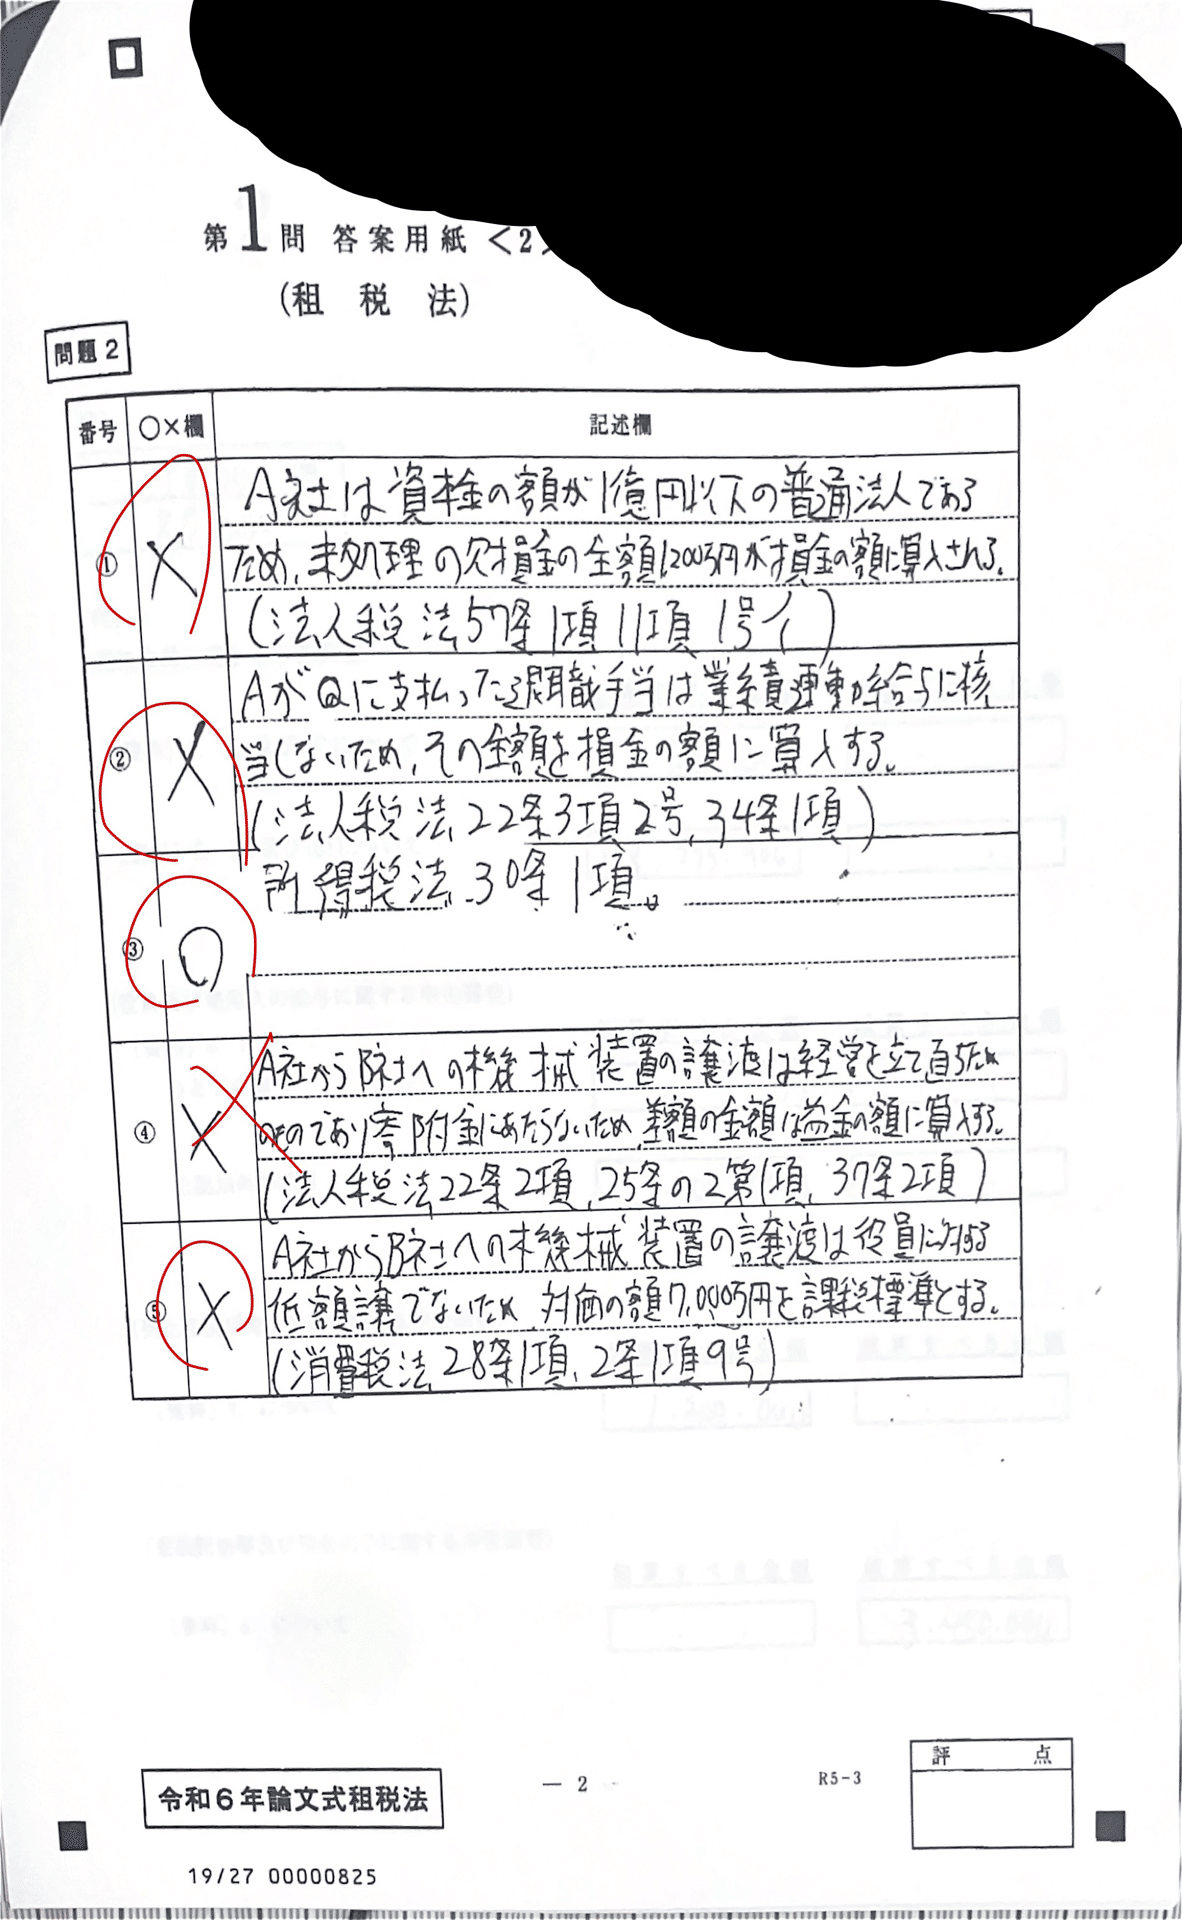 第1問 答案用紙<2>
(租税法)
問題2
番号 ○×欄 記述欄
A社は資本金の額が1億円以下の普通法人である
ため、未処理の欠損金の全額1,200万円が損金の額に算入される。
① ×
(法人税法57条1項11項1号イ)
AがQに支払った退職手当は業績連動給与に核
② ×
当しないため、その全額を損金の額に算入する。
(法人税法22条3項2号、34条1項)
所得税法30条1項。
③ ○
A社からB社への機械装置の譲渡は経営を立て直すため
④ ×
のものであり寄附金にあたらないため、差額の金額は益金の額に算入する。
(法人税法22条2項、25条の2第1項、37条2項)
A社からB社への機械装置の譲渡は役員に対する
⑤ ×
低額譲でないため、対価の額7,000万円を課税標準とする。
(消費税法28条1項、2条1項9号)
評点
令和6年論文式租税法
— 2
R5-3
19/27 00000825